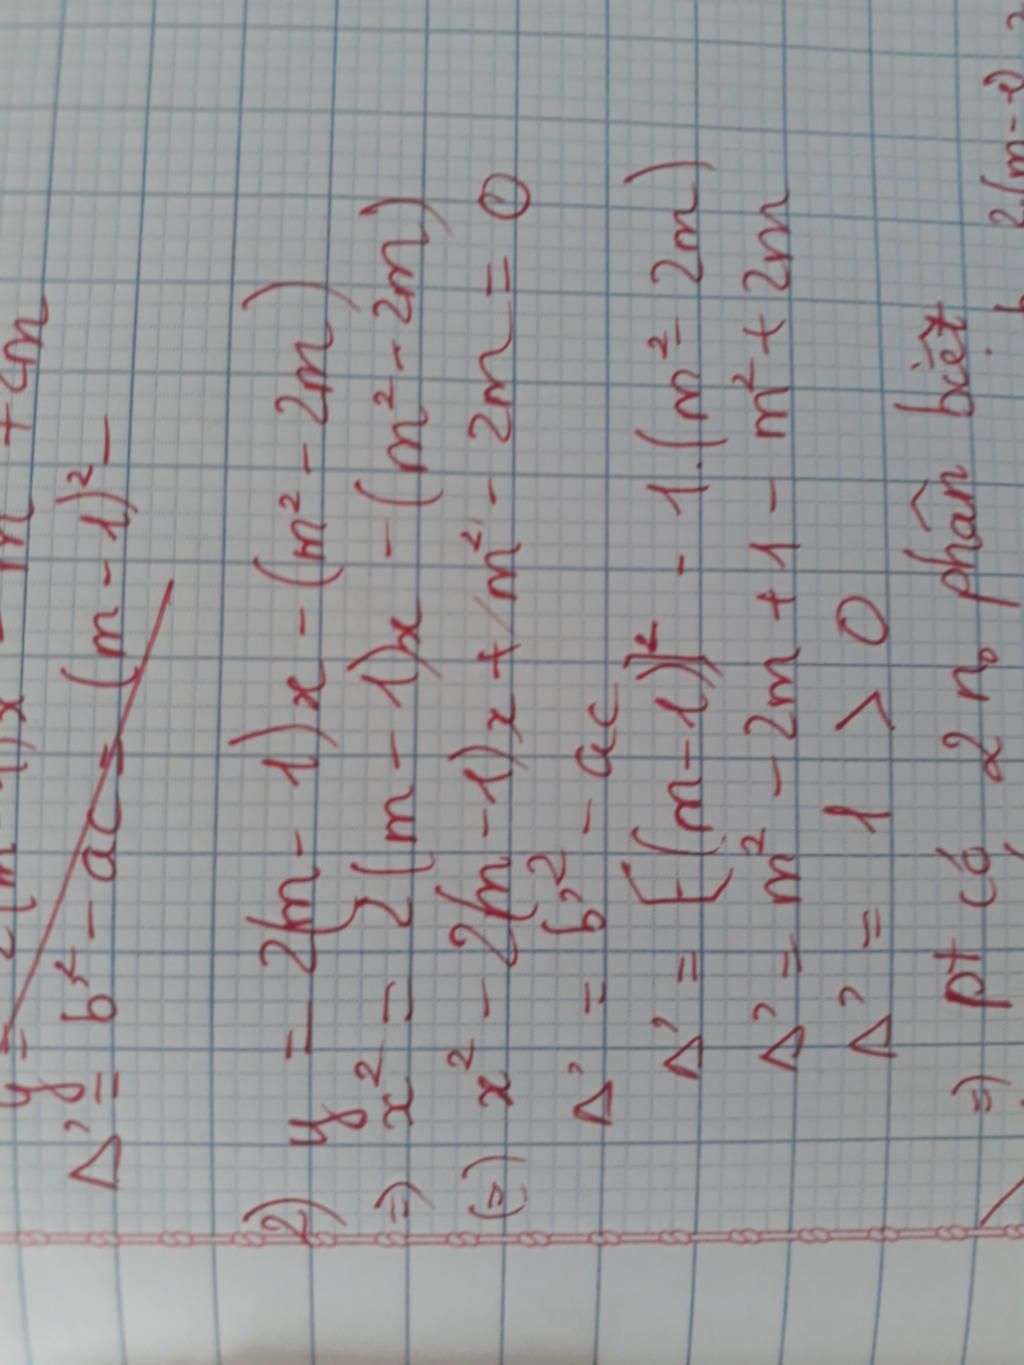 Δ' = b'² - ac = (m - 1)² -
2) y = 2(m - 1)x - (m² - 2m)
=) x² = 2(m - 1)x - (m² - 2m)
(=) x² - 2(m - 1)x + m² - 2m = 0
Δ' = b'² - ac
Δ' = [-(m - 1)]² - 1.(m² - 2m)
Δ' = m² - 2m + 1 - m² + 2m
Δ' = 1 > 0
=) pt có 2 n₀ phân biệt
2(m -